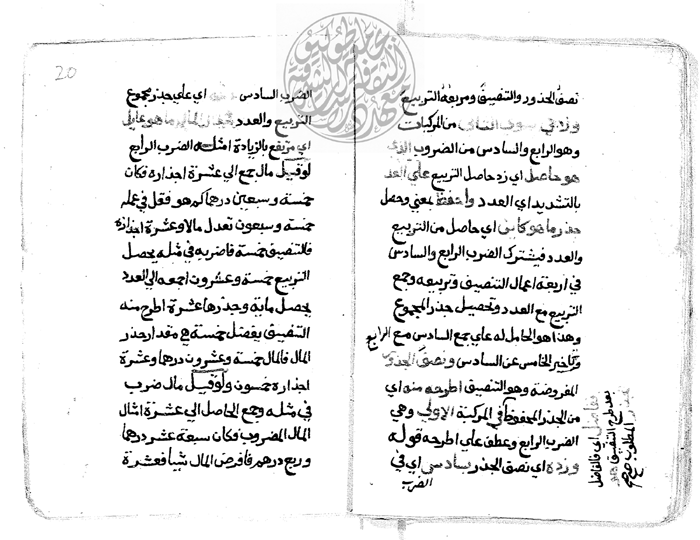 نصف الجذور والتنصيف ومربعه التربيع
من المركبات
وهو الرابع والسادس من الضروب الذي
هو حاصل اي زد حاصل التربيع علي العد
بالتشديد اي العدد واحفظ بمعني وحصل
جذر ما هو كاين اي حاصل من التربيع
والعدد فيشترك الضرب الرابع والسادس
في اربعة اعمال التنصيف وتربيعه وجمع
التربيع مع العدد وتحصيل جذر المجموع
وهذا هو الحامل له علي جمع السادس مع الرابع
وتاخير الخامس عن السادس ونصف الجذور
المفروضة وهو التنصيف اطرحه منه اي
من الجذر المحفوظ في المركبة الاولي وهي
الضرب الرابع وعطف علي اطرحه قوله
وزده اي نصف الجذر بسادس اي في
الضرب
اي فالفاضل
بعد طرح التنصيف
المطلوب صح
20
الضرب السادس اي علي جذر مجموع
التربيع والعدد
اي مرتفع بالزيادة امثلة الضرب الرابع
لو قيل مال جمع الي عشرة اجذاره فكان
خمسة وسبعين درهما كم هو فقل في عمله
خمسة وسبعون تعدل مالا وعشرة اجذاره
فالتنصيف خمسة فاضربه في مثله يحصل
التربيع خمسة وعشرون اجمعه الي العدد
يحصل ماية وجذرها عشرة اطرح منه
التنصيف يفضل خمسة هي مقدار جذر
المال فالمال خمسة وعشرون درهما وعشرة
اجذاره خمسون ولو قيل مال ضرب
في مثله وجمع الحاصل الي عشرة امثال
المال المضروب فكان سبعة عشر درهما
وربع درهم فافرض المال شيا فعشرة